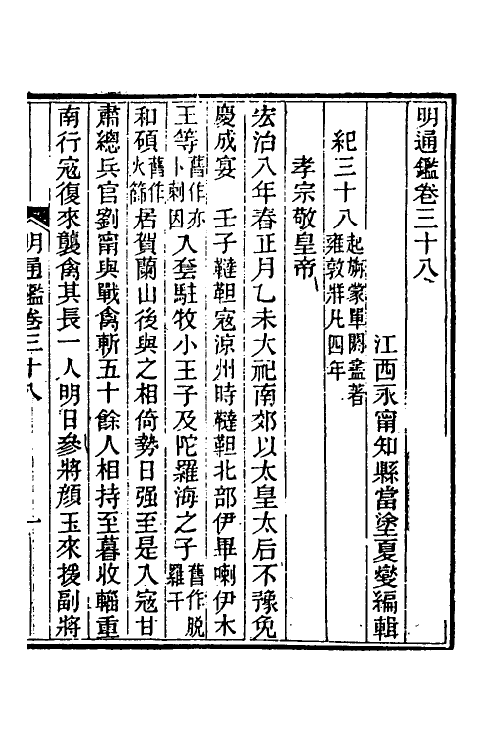 明通鑑卷三十八
江西永甯知縣當塗夏燮編輯
紀三十八起旃蒙單閼盡著雍敦牂凡四年
孝宗敬皇帝
宏治八年春正月乙未大祀南郊以太皇太后不豫免
慶成宴　壬子韃靼寇涼州時韃靼北部伊畢喇伊木
王等舊作亦卜刺因入套駐牧小王子及陀羅海之子舊作脱羅干
和碩舊作火篩居賀蘭山後與之相倚勢日强至是入寇甘
肅總兵官劉甯與戰禽斬五十餘人相持至暮收輜重
南行寇復來襲禽其長一人明日參將顔玉來援副將
明通鑑卷三十八　一